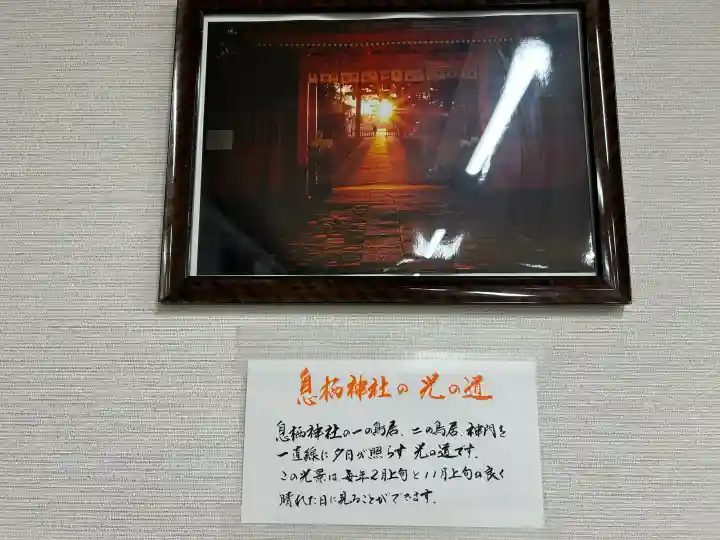 息栖神社の光の道
息栖神社の一の鳥居、二の鳥居、神門を
一直線に夕日が照らす 光の道です.
この光景は毎年2月上旬と11月上旬の良く
晴れた日に見ることができます.